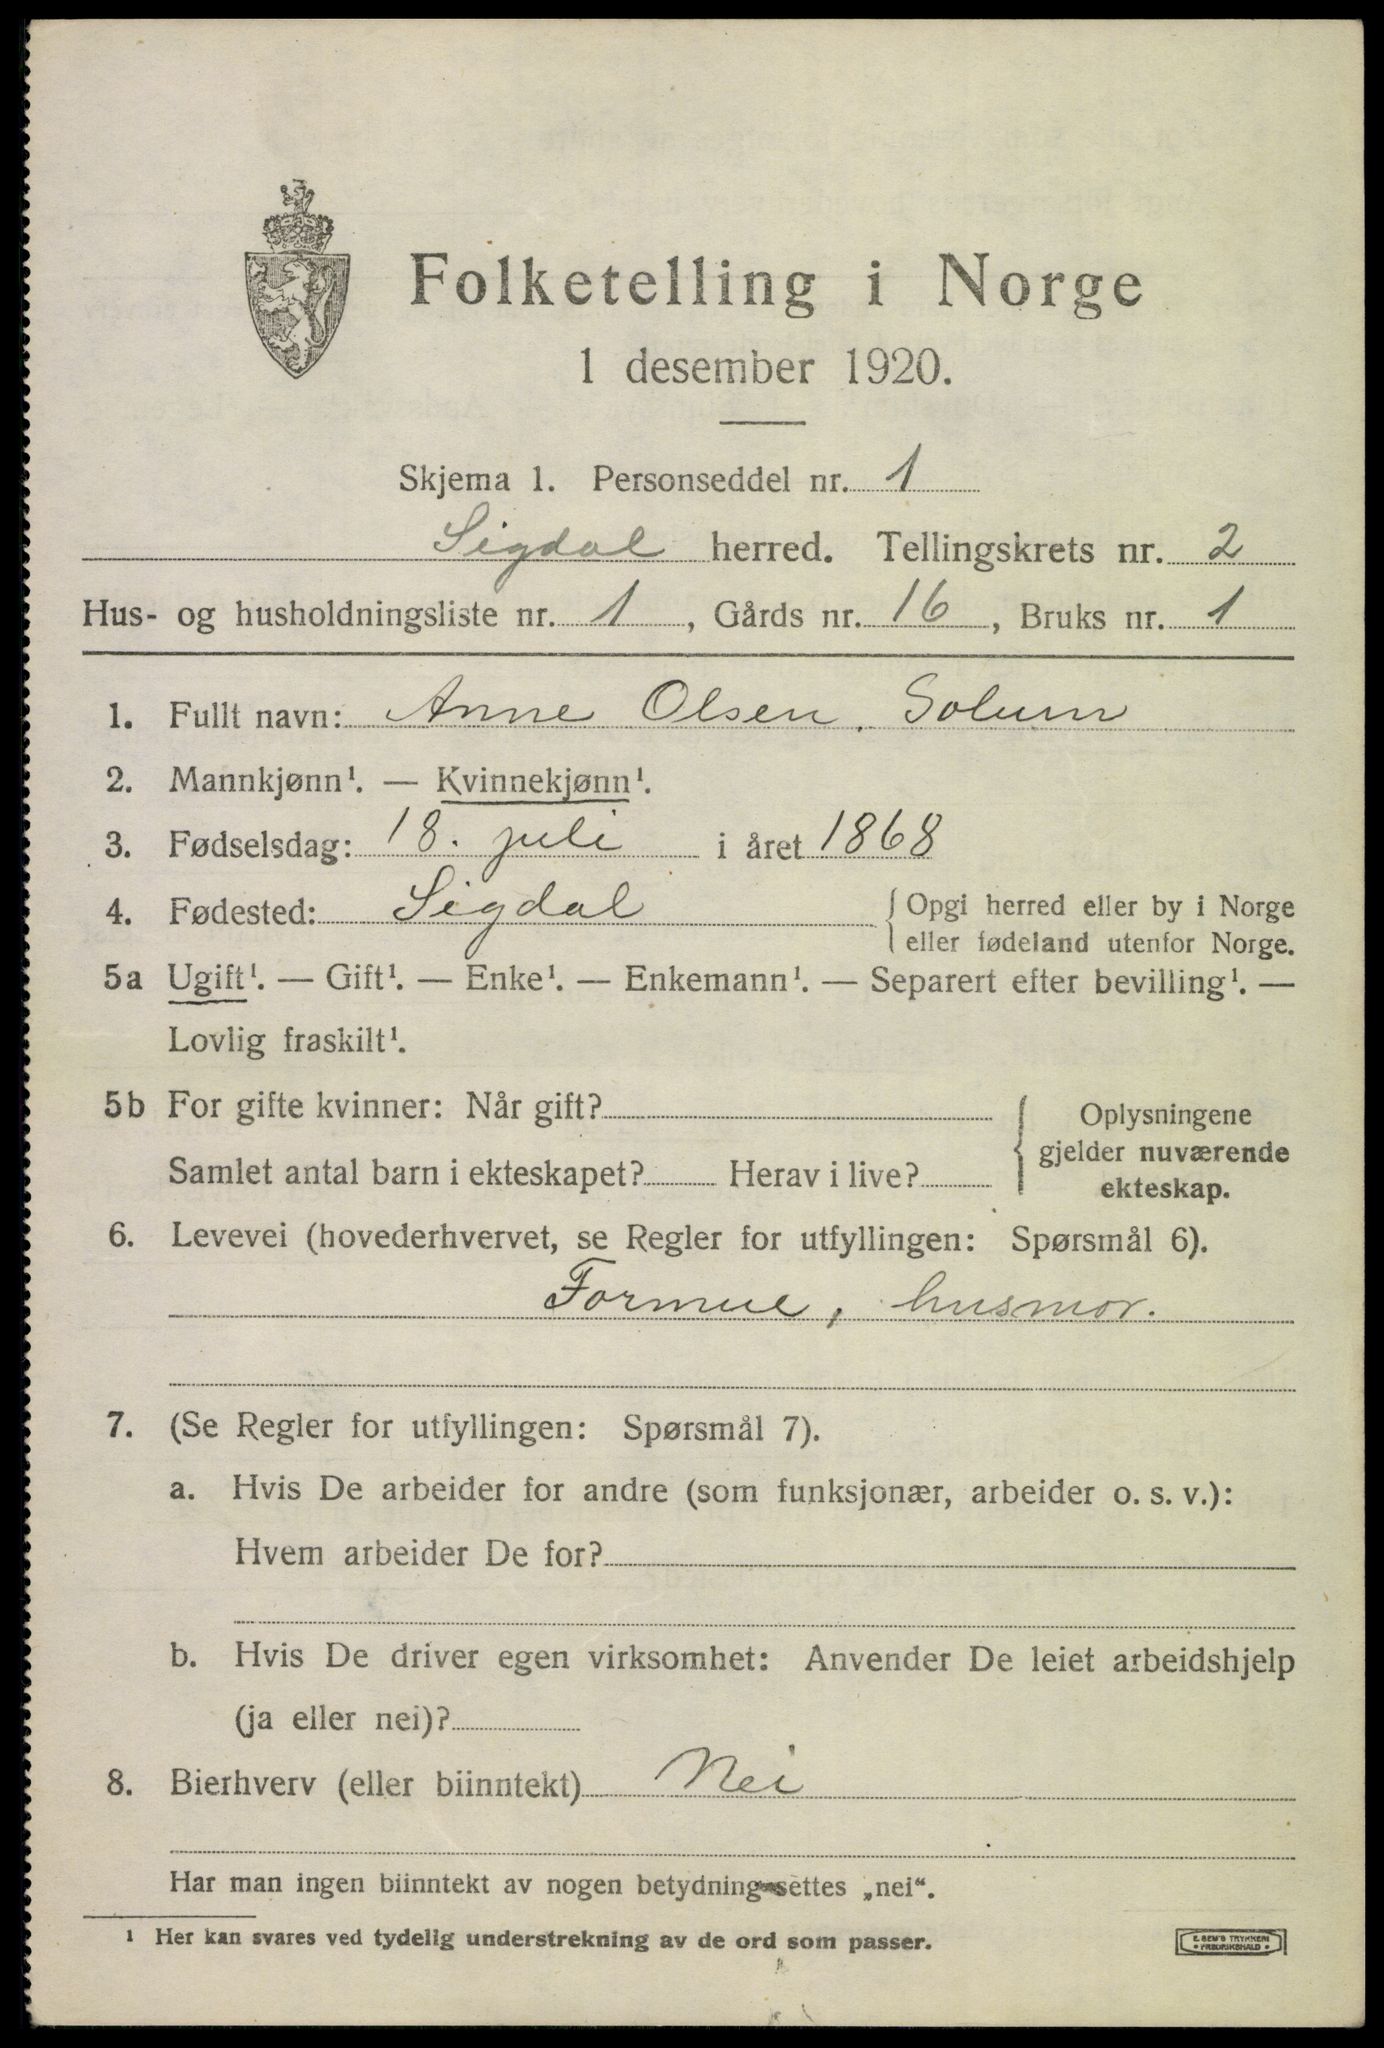 Folketelling i Norge
1 desember 1920.
Skjema 1. Personseddel nr. 1
Sigdal herred. Tellingskrets nr. 2
Hus- og husholdningsliste nr. 1, Gårds nr. 16, Bruks nr. 1
1. Fullt navn: Anne Olsen Solum
2. Mannkjønn¹. — Kvinnekjønn¹.
3. Fødselsdag: 18. juli i året 1868
4. Fødested: Sigdal { Opgi herred eller by i Norge
eller fødeland utenfor Norge.
5a Ugift¹. — Gift¹. — Enke¹. — Enkemann¹. — Separert efter bevilling¹. —
Lovlig fraskilt¹.
5b For gifte kvinner: Når gift?
Samlet antal barn i ekteskapet? Herav i live?
{ Oplysningene
gjelder nuværende
ekteskap.
6. Levevei (hovederhvervet, se Regler for utfyllingen: Spørsmål 6).
Formue, husmor.
7. (Se Regler for utfyllingen: Spørsmål 7).
a. Hvis De arbeider for andre (som funksjonær, arbeider o. s. v.):
Hvem arbeider De for?
b. Hvis De driver egen virksomhet: Anvender De leiet arbeidshjelp
(ja eller nei)?
8. Bierhverv (eller biinntekt) Nei
Har man ingen biinntekt av nogen betydning settes „nei“.
¹ Her kan svares ved tydelig understrekning av de ord som passer.
E. SEM'S TRYKKERI
FREDRIKSHALD